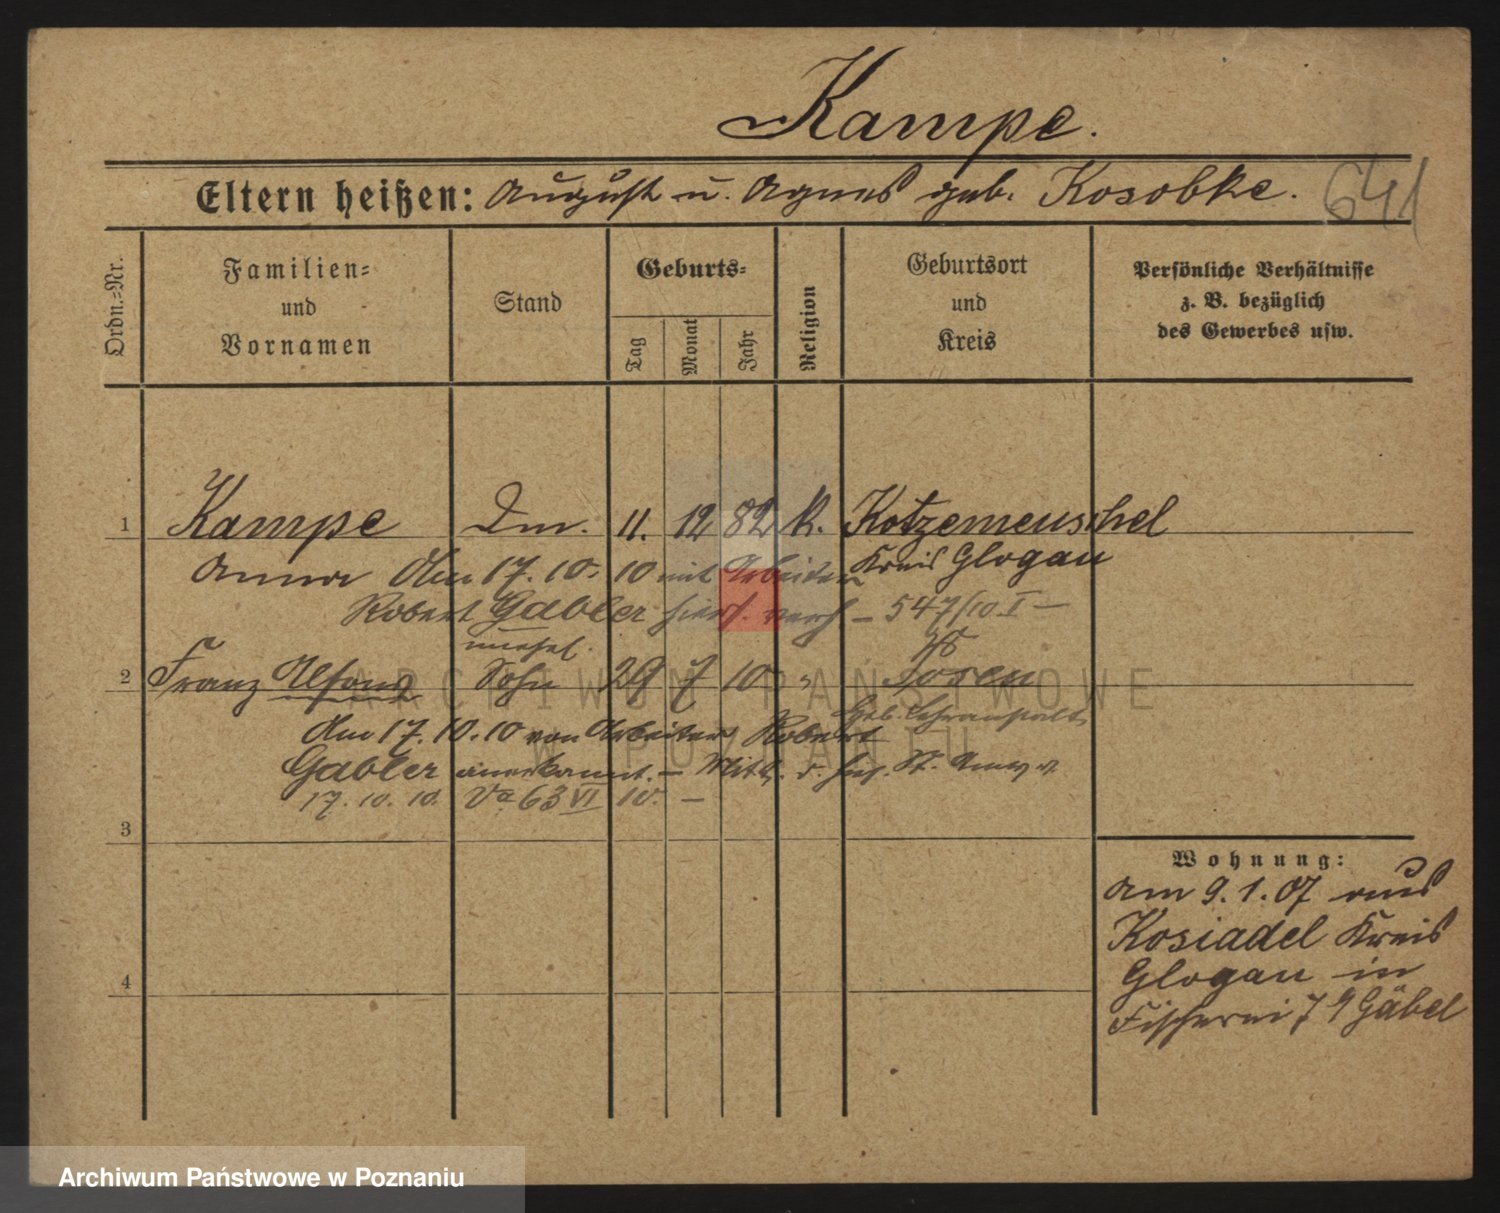 Kampe.
Eltern heißen: August u. Agnes geb. Kosobke.
641
Ordn.=Nr.
Familien=
und
Vornamen
Stand
Geburts=
Tag
Monat
Jahr
Religion
Geburtsort
und
Kreis
Persönliche Verhältnisse
z. B. bezüglich
des Gewerbes usw.
1 Kampe Dm. 11. 12 82 k. Kotzemeuschel
Anna Am 17. 10. 10 mit Arbeiter Kreis Glogau
Robert Gabler hier verh – 547/10 I –
unehel.
2 Franz Alfons Sohn 29 7 10 " Posen
Geb. Lehranstalt
Am 17. 10. 10 von Arbeiter Robert
Gabler anerkannt. – Mitt. d. St. v.
17. 10. 10. Va 63 VI 10. –
3
Wohnung:
am 9. 1. 07 aus
Kosiadel Kreis
Glogau in
Fischerei 7 Gäbel
4
ARCHIWUM PAŃSTWOWE
W POZNANIU
Archiwum Państwowe w Poznaniu